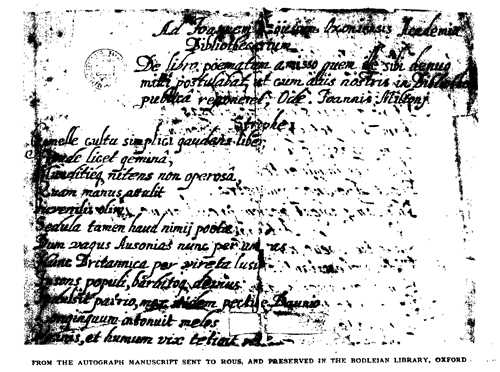 Ad Ioannem Oxoniensis Academiæ
Bibliothecarium
De libro poematum amisso quem ille sibi denuo
mitti postulabat, ut cum aliis nostris in
publicâ reponeret, Ode. Ioannis Miltonj
Strophe
Gemelle cultu simplici gaudens liber
Fronde licet geminâ,
Munditieq nitens non operosâ,
Quam manus attulit
Iuvenilis olim,
Sedula tamen haud nimij poetæ
Dum vagus Ausonias nunc per
Nunc Britannica per vireta lusit
Insons populi, barbitoq devius
Indulsit patrio, mox itidem pectine Daunio
Longinquum intonuit melos
Vicinis, et humum vix tetigit
FROM THE AUTOGRAPH MANUSCRIPT SENT TO ROUS, AND PRESERVED IN THE BODLEIAN LIBRARY, OXFORD